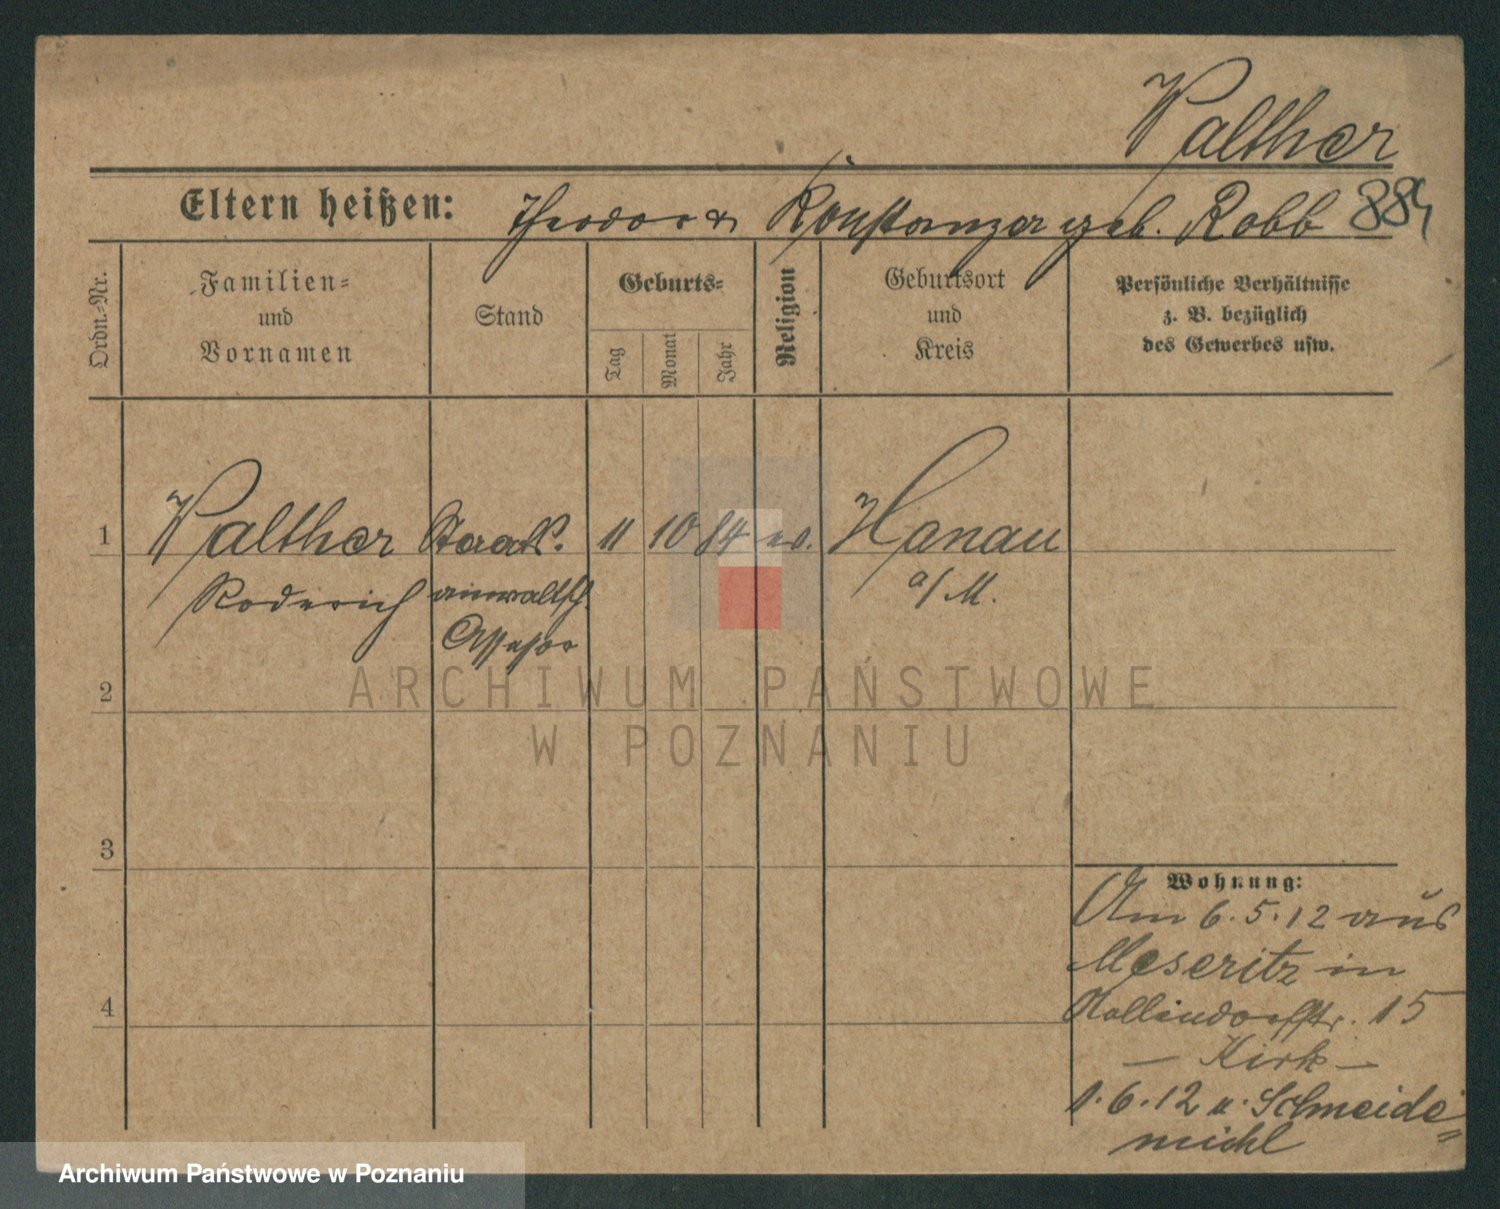 Walther
Eltern heißen: Theodor u Konstanze geb. Robb 884
Ordn.-Nr.
Familien-
und
Vornamen
Stand
Geburts-
Tag
Monat
Jahr
Religion
Geburtsort
und
Kreis
Persönliche Verhältnisse
z. B. bezüglich
des Gewerbes usw.
1 Walther Staats. 11 10 84 ev. Hanau
Roderich anwaltsch. a/M.
Assessor
2
3
4
Wohnung:
Am 6.5.12 aus
Meseritz in
15
— Kirk —
1.6.12 n. Schneide=
mühl
ARCHIWUM PAŃSTWOWE
W POZNANIU
Archiwum Państwowe w Poznaniu